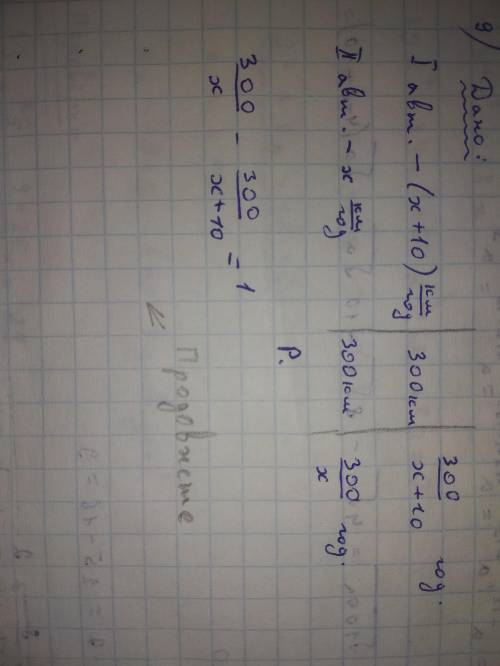 9) Дано:
I авт. – (x+10) км/год 300км 300/x+10 год.
II авт. – x км/год 300км 300/x год.
Р.
300/x – 300/x+10 = 1
Продовжете